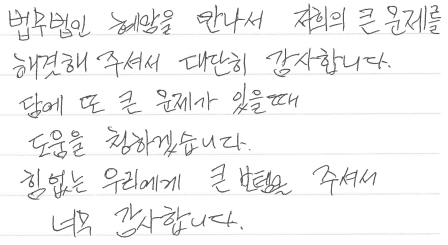 법무법인 혜암을 만나서 저희의 큰 문제를
해결해 주셔서 대단히 감사합니다.
담에 또 큰 문제가 있을때
도움을 청하겠습니다.
힘없는 우리에게 큰 보탬을 주셔서
너무 감사합니다.